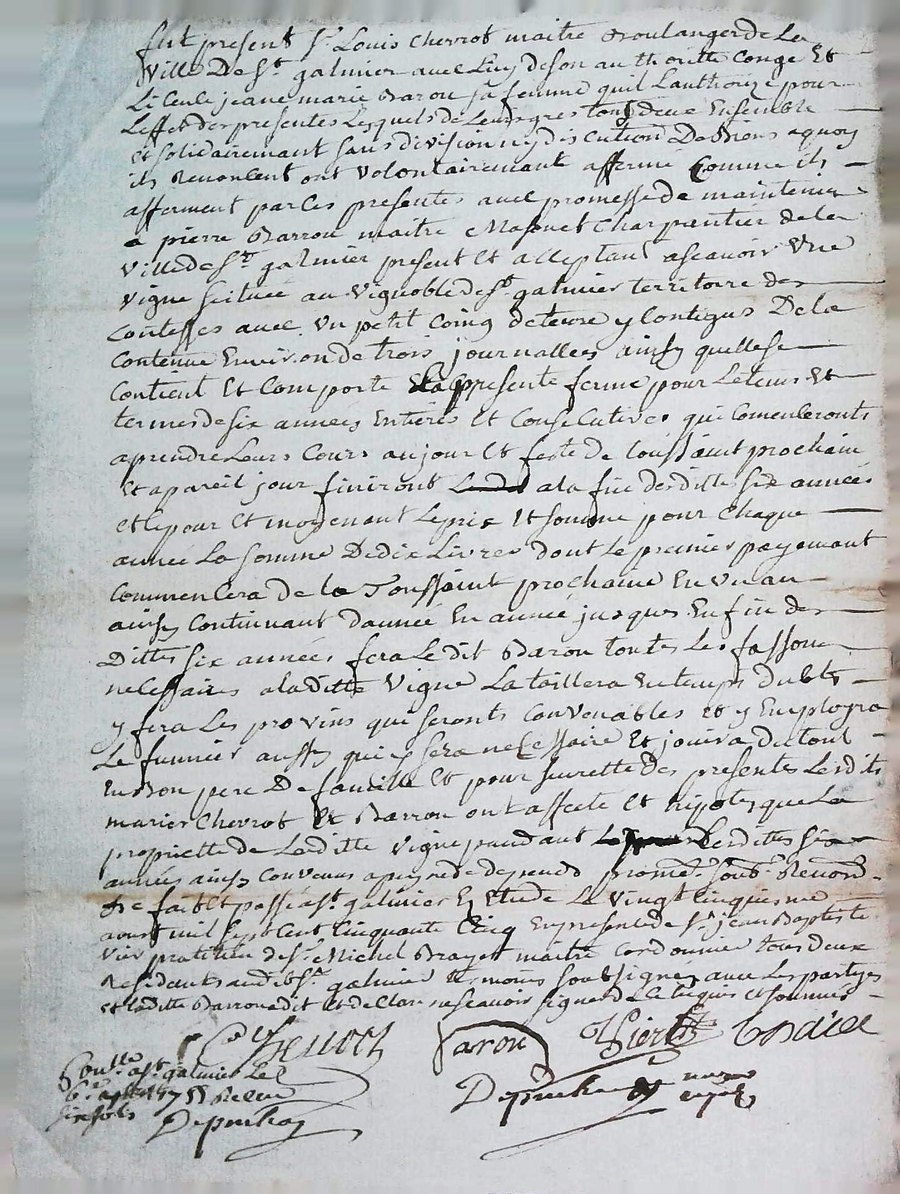 fut present Sr. Louis Chevrot maitre Boulanger de La
Ville De St. galmier avec Luy de son authoritté Congé Et
Licence jeane marie Barou sa femme quil Lauthorize pour
Leffet des presentes Lesquels de Leurs gres tous deux Ensemble
Et solidairemant sans division ny discution De Biens a quoy
ils Renoncent ont volontairemant afferme Comme ils
afferment par Ces presentes avec promesse de maintenir
a pierre Barrou maitre Masonet Charpantier de la
Ville de St. galmier present Et acceptant ascavoir Une
Vigne scituée au Vignoble de St. galmier territoire des
Contesses avec Un petit Coing de terre y Contigus De la
Contenue Environ de trois journallees ainsy quelle se
Contient Et Comporte Et la presente ferme pour Le tems Et
termes de six années Entieres Et Consecutives qui Comenceronts
a prendre Leurs Cours au jour Et feste de toussaint prochain
Et a pareil jour finiront a la fin desditte six années
Et Ce pour Et moyenant Le prix Et somme pour Chaque
année La somme De dix Livres dont Le premier payemant
Commencera de la Toussaint prochaine En Un an
ainsy Continuant dannée En année jusques En fin des
Dittes six années fera Le dit Barou toutes Les fassons
necessaires a laditte Vigne La taillera En temps Dubts
y fera Les provins qui seronts Convenables Et y Employra
Le fumier aussy qui y sera necessaire Et jouira du tout
En Bon pere De famille Et pour surette des presentes Lesdits
mariés Chevrot Et Barrou ont affecte Et hipotesque La
propriette de Laditte Vigne pendant Lesdittes six
années ainsy Convenu a peyne de despends prome. soub. Renond.
De fait Et passé a St. galmier En Etude Le Vingt Cinquiesme
aoust mil sept Cent Cinquante Cinq En presence de Sr. jean Baptiste
Vier pratitien de Sr. Michel Brayet maitre Cordonnier tous deux
Residants audit St. galmier temoins soubsignes avec Les partyes
et laditte Barrou a dit et declare ne scavoir signer de Ce Enquis et sommée
Chevrot Barou Vier
Conlle. a St. galmier Le
1755 Recu
six sols